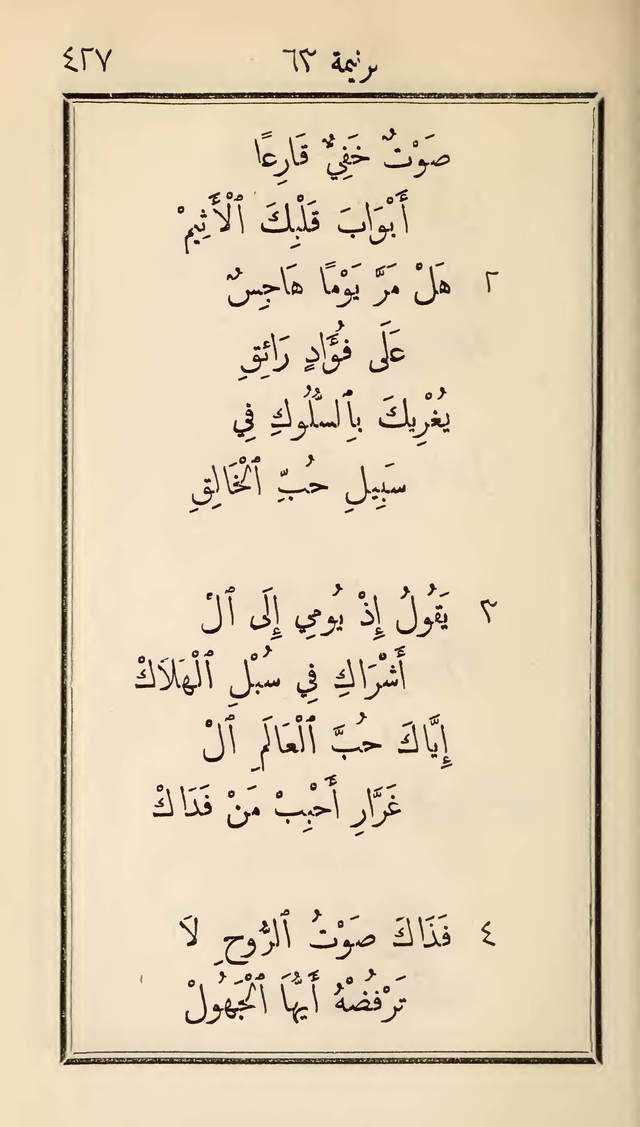 ترنيمة ٦٣ ٤٢٧
صَوْتٌ خَفِيٌّ قَارِعًا
أَبْوَابَ قَلْبِكَ ٱلْأَثِيمْ
٢ هَلْ مَرَّ يَوْمًا هَاجِسٌ
عَلَى فُؤَادٍ رَائِقِ
يُغْرِيكَ بِٱلسُّلُوكِ فِي
سَبِيلِ حُبِّ ٱلْخَالِقِ
٣ يَقُولُ إِذْ يُومِي إِلَى ٱلْ
أَشْرَاكِ فِي سُبْلِ ٱلْهَلاَكْ
إِيَّاكَ حُبَّ ٱلْعَالَمِ ٱلْ
غَرَّارِ أَحْبِبْ مَنْ فَدَاكْ
٤ فَذَاكَ صَوْتُ ٱلرُّوحِ لاَ
تَرْفُضْهُ أَيُّهَا ٱلْجَهُولْ